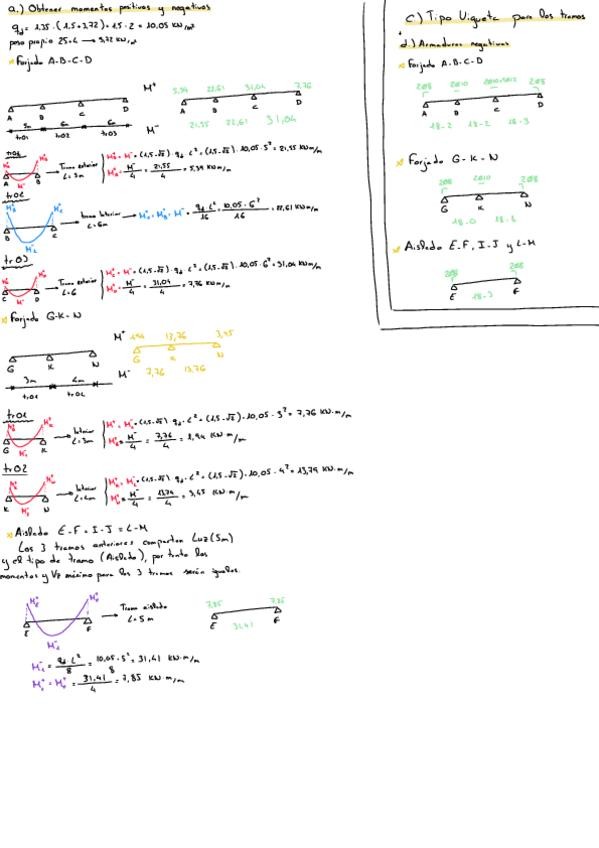 a.) Obtener momentos positivos y negativos
qd = 1,35 · (1,5+3,72) + 1,5 · 2 = 10,05 KN/m²
peso propio 25+L → 3,72 KN/m²
* Forjado A-B-C-D
M⁺ 5,39 22,61 31,04 7,76
A B C D
A B C D
M⁻ 21,55 22,61 31,04
5m 6m 6m
tr01 tr02 tr03
tr01
A B
Tramo exterior
L = 5m
= (1,5-√2) · qd · L² = (1,5-√2) · 10,05 · 5² = 21,55 KN m/m
= M⁻/4 = 21,55/4 = 5,39 KN m/m
tr02
B C
Tramo Interior
L = 6m
= M⁻ = qd · L²/16 = 10,05 · 6²/16 = 22,61 KN m/m
tr03
C D
Tramo exterior
L = 6
= (1,5-√2) · qd · L² = (1,5-√2) · 10,05 · 6² = 31,04 KN m/m
= M⁻/4 = 31,04/4 = 7,76 KN m/m
* Forjado G-K-N
M⁺ 1,94 13,76 3,45
G K N
G K N
M⁻ 7,76 13,76
3m 4m
tr01 tr02
tr01
G K
L = 3m
= (1,5-√2) qd · L² = (1,5-√2) · 10,05 · 3² = 7,76 KN·m/m
= M⁻/4 = 7,76/4 = 1,94 KN·m/m
tr02
K N
L = 4m
= (1,5-√2) qd · L² = (1,5-√2) · 10,05 · 4² = 13,79 KN·m/m
= M⁻/4 = 13,79/4 = 3,45 KN·m/m
* Aislado E-F = I-J = L-M
Los 3 tramos anteriores comparten Luz (5m)
y el tipo de tramo (Aislado), por tanto los
momentos y Vd máximo para los 3 tramos serán iguales.
E F
Tramo aislado
L = 5 m
7,85 7,85
E F
31,41
= qd · L²/8 = 10,05 · 5²/8 = 31,41 KN·m/m
= 31,41/4 = 7,85 KN·m/m
c) Tipo Vigueta para los tramos
d.) Armaduras negativas
* Forjado A-B-C-D
2Ø8 2Ø10 2Ø8
A B C D
18-2 18-2 18-3
* Forjado G-K-N
2Ø8 2Ø10 2Ø8
G K N
18-0 18-1
* Aislado E-F, I-J y L-M
2Ø8 2Ø8
E F
18-3